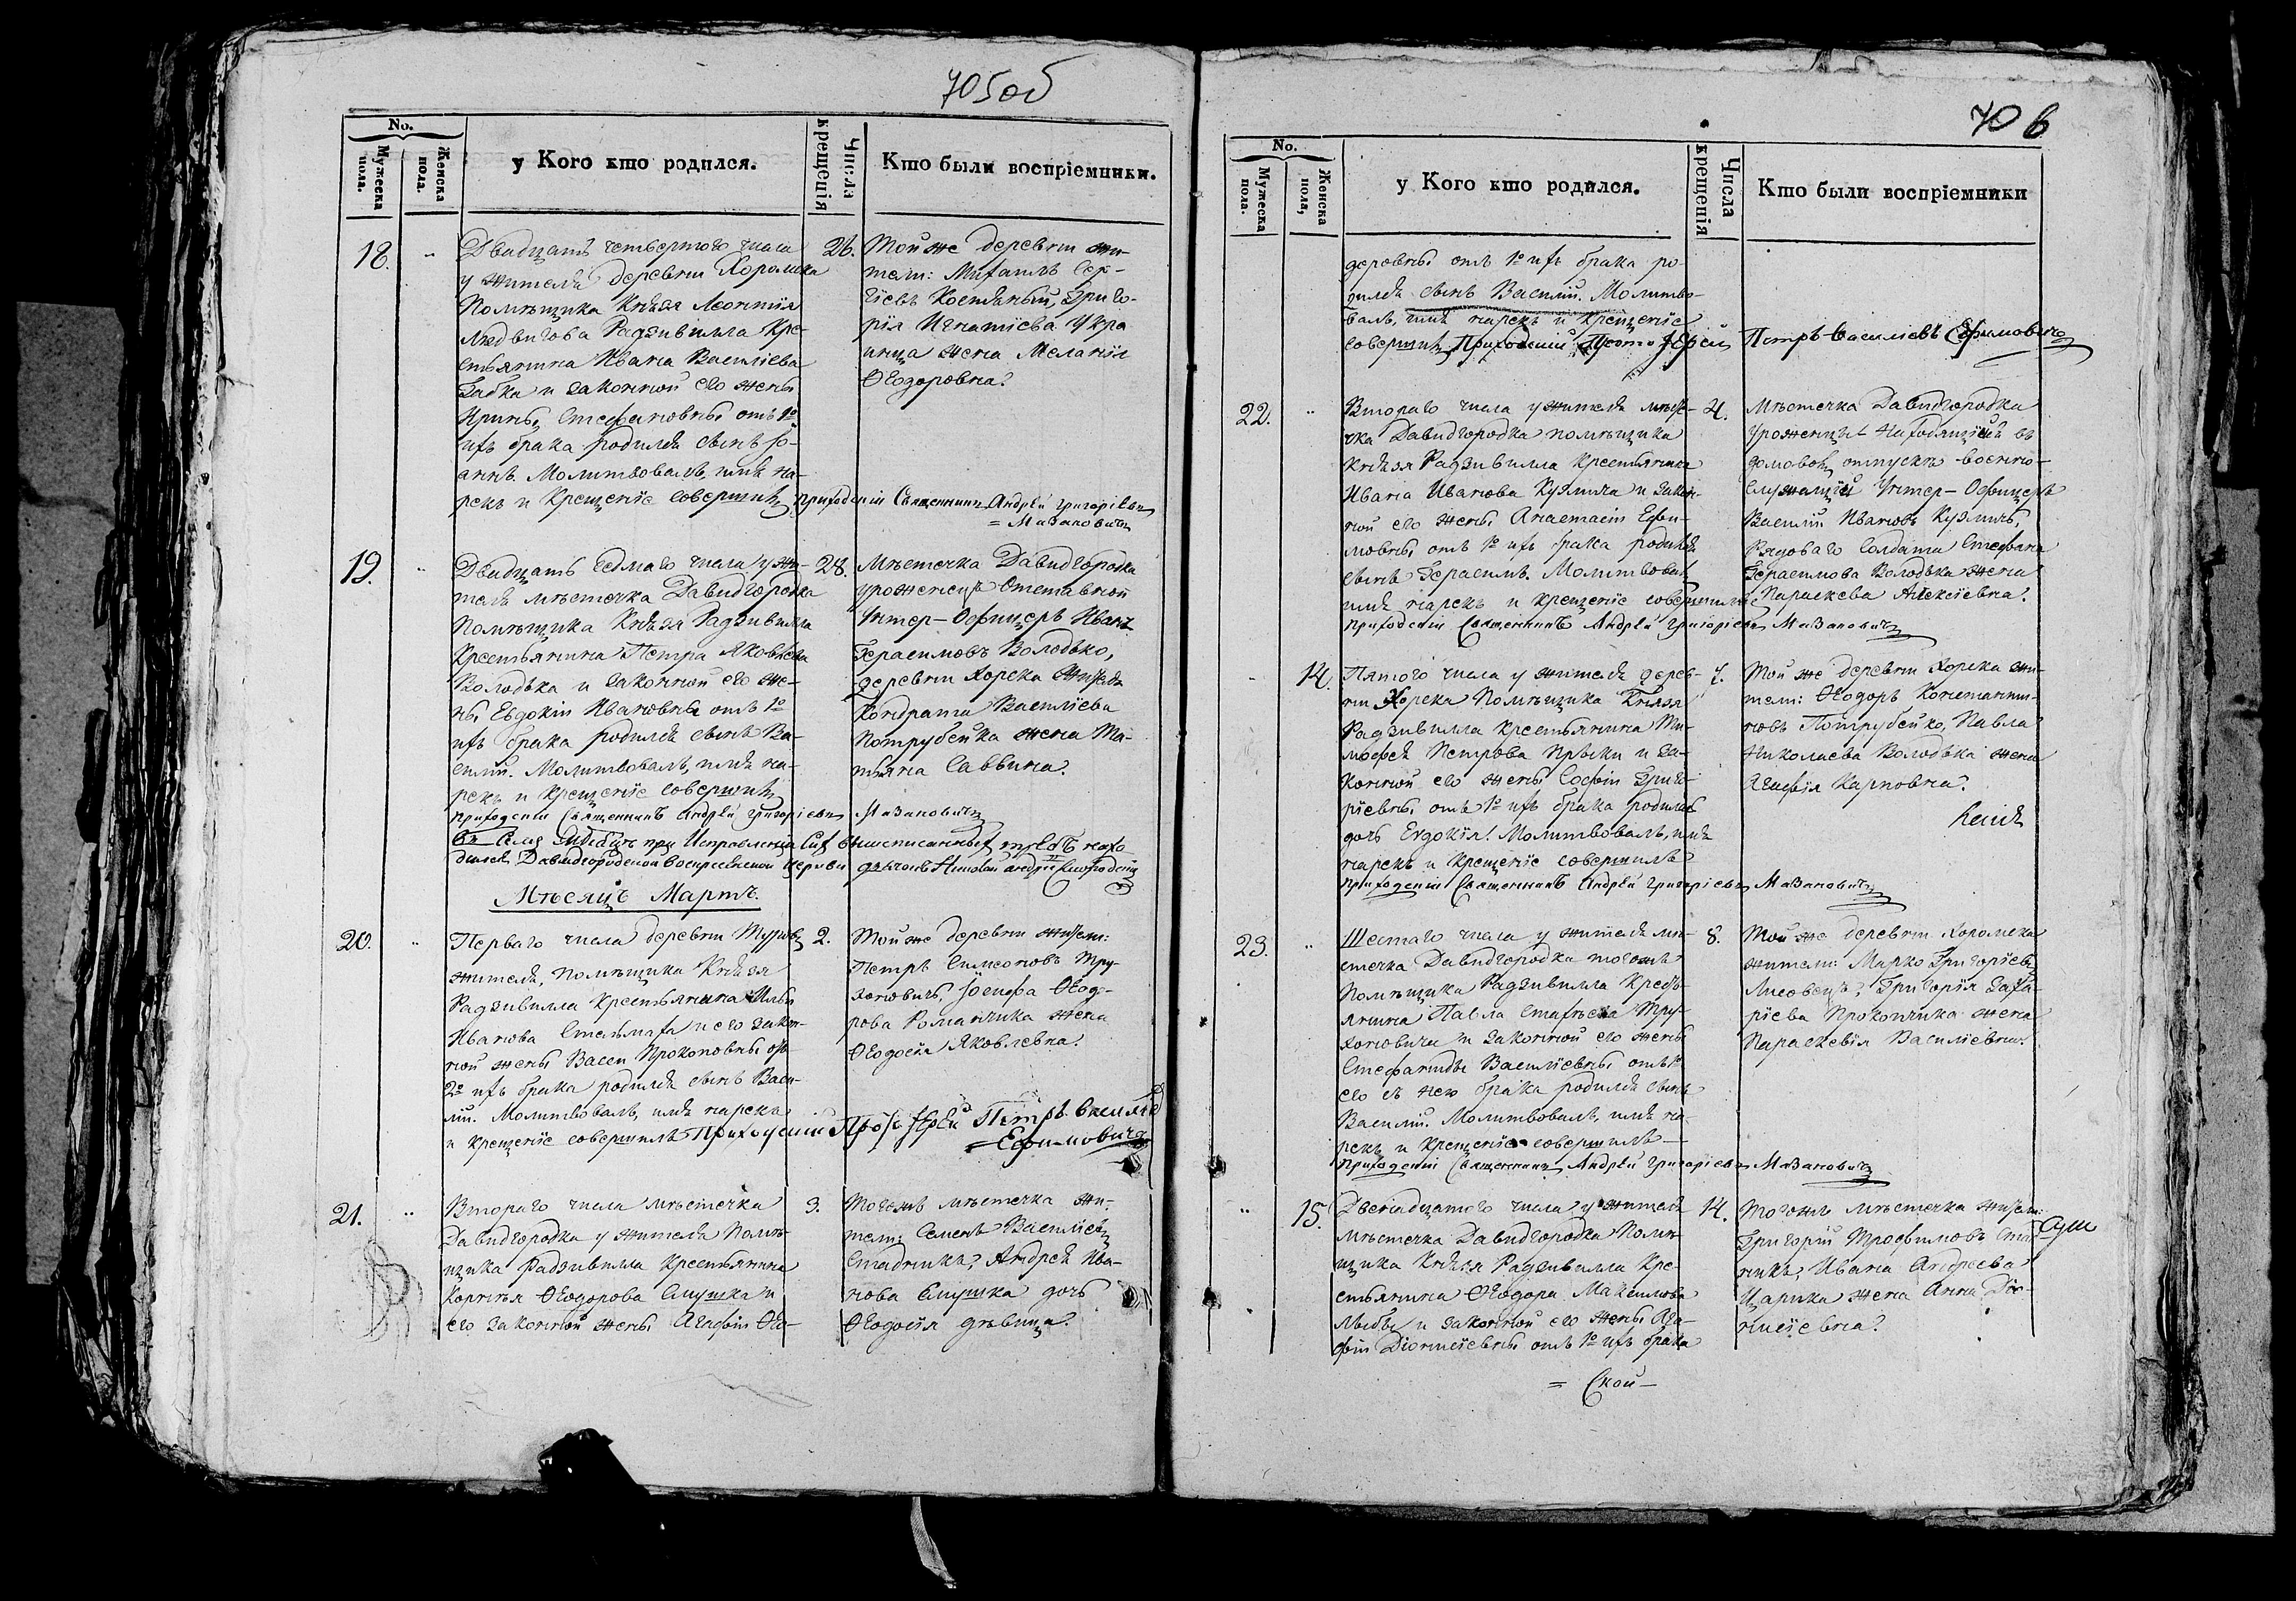 705об
No.
Мужеска пола.
Женска пола.
у Кого кто родился.
Числа крещенія
Кто были воспріемники.
18.
Двадцать четвертого числа
у жителя деревни Хоромска
Помѣщика Князя Леонтія
Людвигова Радзивилла Кре-
стьянина Ивана Василіева
и законной его жены
Ирины Стефановны отъ 1º
ихъ брака родился сынъ Іо-
аннъ. Молитвовалъ, имя на-
рекъ и Крещеніе совершилъ Приходскій Священникъ Андрей Григоріевъ
= Мазановичъ
26.
Той же деревни жи-
тели: Михаилъ Сер-
гіевъ Григо-
рія Игнатіева Укра
инца жена Меланія
Ѳеодоровна.
19.
Двадцать седмаго числа у жи-
теля мѣстечка Давидгородка
Помѣщика Князя Радзивилла
Крестьянина Петра Яковлева
Володька и законной его же-
ны Евдокіи Ивановны отъ 1º
ихъ брака родился сынъ Ва-
силій. Молитвовалъ, имя на-
рекъ и Крещеніе совершилъ
приходскій Священникъ Андрей Григоріевъ Мазановичъ
28.
Мѣстечка Давидгородка
уроженецъ Отставной
Унтер-Офицеръ Иванъ
Герасимовъ Володько,
деревни Хорска жителя
Кондрата Василіева
Потрубейка жена Та-
тьяна Саввина.
при Исправленіи сих вышеписанныхъ требъ нахо
дился Давидгородской Воскресенской церкви
Мѣсяцъ Мартъ.
20.
Перваго числа деревни Туровъ
жителя, помѣщика Князя
Радзивилла Крестьянина Ильи
Иванова Стельмаха и его закон-
ной жены Васси Прокоповны отъ
2º ихъ брака родился сынъ Васи-
лій. Молитвовалъ, имя нарекъ
и Крещеніе совершилъ Приходскій Протоіерей Петръ Василіевъ
= Ефимовичъ
2.
Той же деревни жители:
Петръ Симеоновъ Тру-
хоновичъ, Іосифа Ѳеодо-
рова Романчика жена
Ѳеодосія Яковлевна.
21.
Втораго числа мѣстечка
Давидгородка у жителя Помѣ-
щика Радзивилла Крестьянина
Корнилія Ѳеодорова Слушка и
его законной жены Агафіи Ѳео-
3.
Тогожъ мѣстечка жи-
тели: Семенъ Василіевъ
Стадникъ, Андрея Ива-
нова Слушка дочь
Ѳеодосія дѣвица.
706
No.
Мужеска пола.
Женска пола,
у Кого кто родился.
Числа крещенія
Кто были воспріемники
деровны отъ 1º ихъ брака ро-
дился сынъ Василій. Молитво-
валъ, имя нарекъ и Крещеніе
совершилъ Приходскій Протоіерей Петръ Василіевъ Ефимовичъ
22.
Втораго числа у жителя мѣсте-
чка Давидгородка помѣщика
Князя Радзивилла Крестьянина
Ивана Иванова Кузмича и закон-
ной его жены Анастасіи Ефи-
мовны отъ 1º ихъ брака родился
сынъ Герасимъ. Молитвовалъ
имя нарекъ и крещеніе совершилъ
приходскій Священникъ Андрей Григоріевъ Мазановичъ
4.
Мѣстечка Давидгородка
уроженцы Находящійся въ
домовомъ отпускѣ военно-
служащій Унтер-Офицеръ
Василій Ивановъ Кузмичъ,
Рядоваго Солдата Стефана
Герасимова Володька жена
Параскева Алексіевна.
14.
Пятого числа у жителя дерев-
ни Хорска Помѣщика Князя
Радзивилла Крестьянина Ти-
мофея Петрова и за-
конной его жены Софіи Григо-
ріевны отъ 1º ихъ брака родилась
дочь Евдокія. Молитвовалъ, имя
нарекъ и Крещеніе совершилъ
приходскій Священникъ Андрей Григоріевъ Мазановичъ
7.
Той же деревни Хорска жи-
тели: Ѳеодоръ Константи-
новъ Потрубейко, Павла
Николаева Володька жена
Агафія Карповна.
23.
Шестаго числа у жителя мѣ-
стечка Давидгородка тогожъ
Помѣщика Радзивилла Кресть-
янина Павла Тру-
хоновича и законной его жены
Стефаниды Василіевны отъ 1º
его съ нею брака родился сынъ
Василій. Молитвовалъ, имя на-
рекъ и Крещеніе совершилъ —
приходскій Священникъ Андрей Григоріевъ Мазановичъ
8.
Той же деревни Хоромска
жители: Марко Григоріевъ
Лисовецъ, Григорія Заха-
ріева Прокопчика жена
Параскевія Василіевна.
15.
Двенадцатого числа у жителя
мѣстечка Давидгородка Помѣ-
щика Князя Радзивилла Кре-
стьянина Ѳеодора Максимова
и законной его жены Ага-
фіи Діонисіевны отъ 1º ихъ брака
14.
Тогожъ мѣстечка жители:
Григорій Трофимовъ Стад-
никъ, Ивана Андреева
Царика жена Анна Діо-
нисіевна.
= Скои —